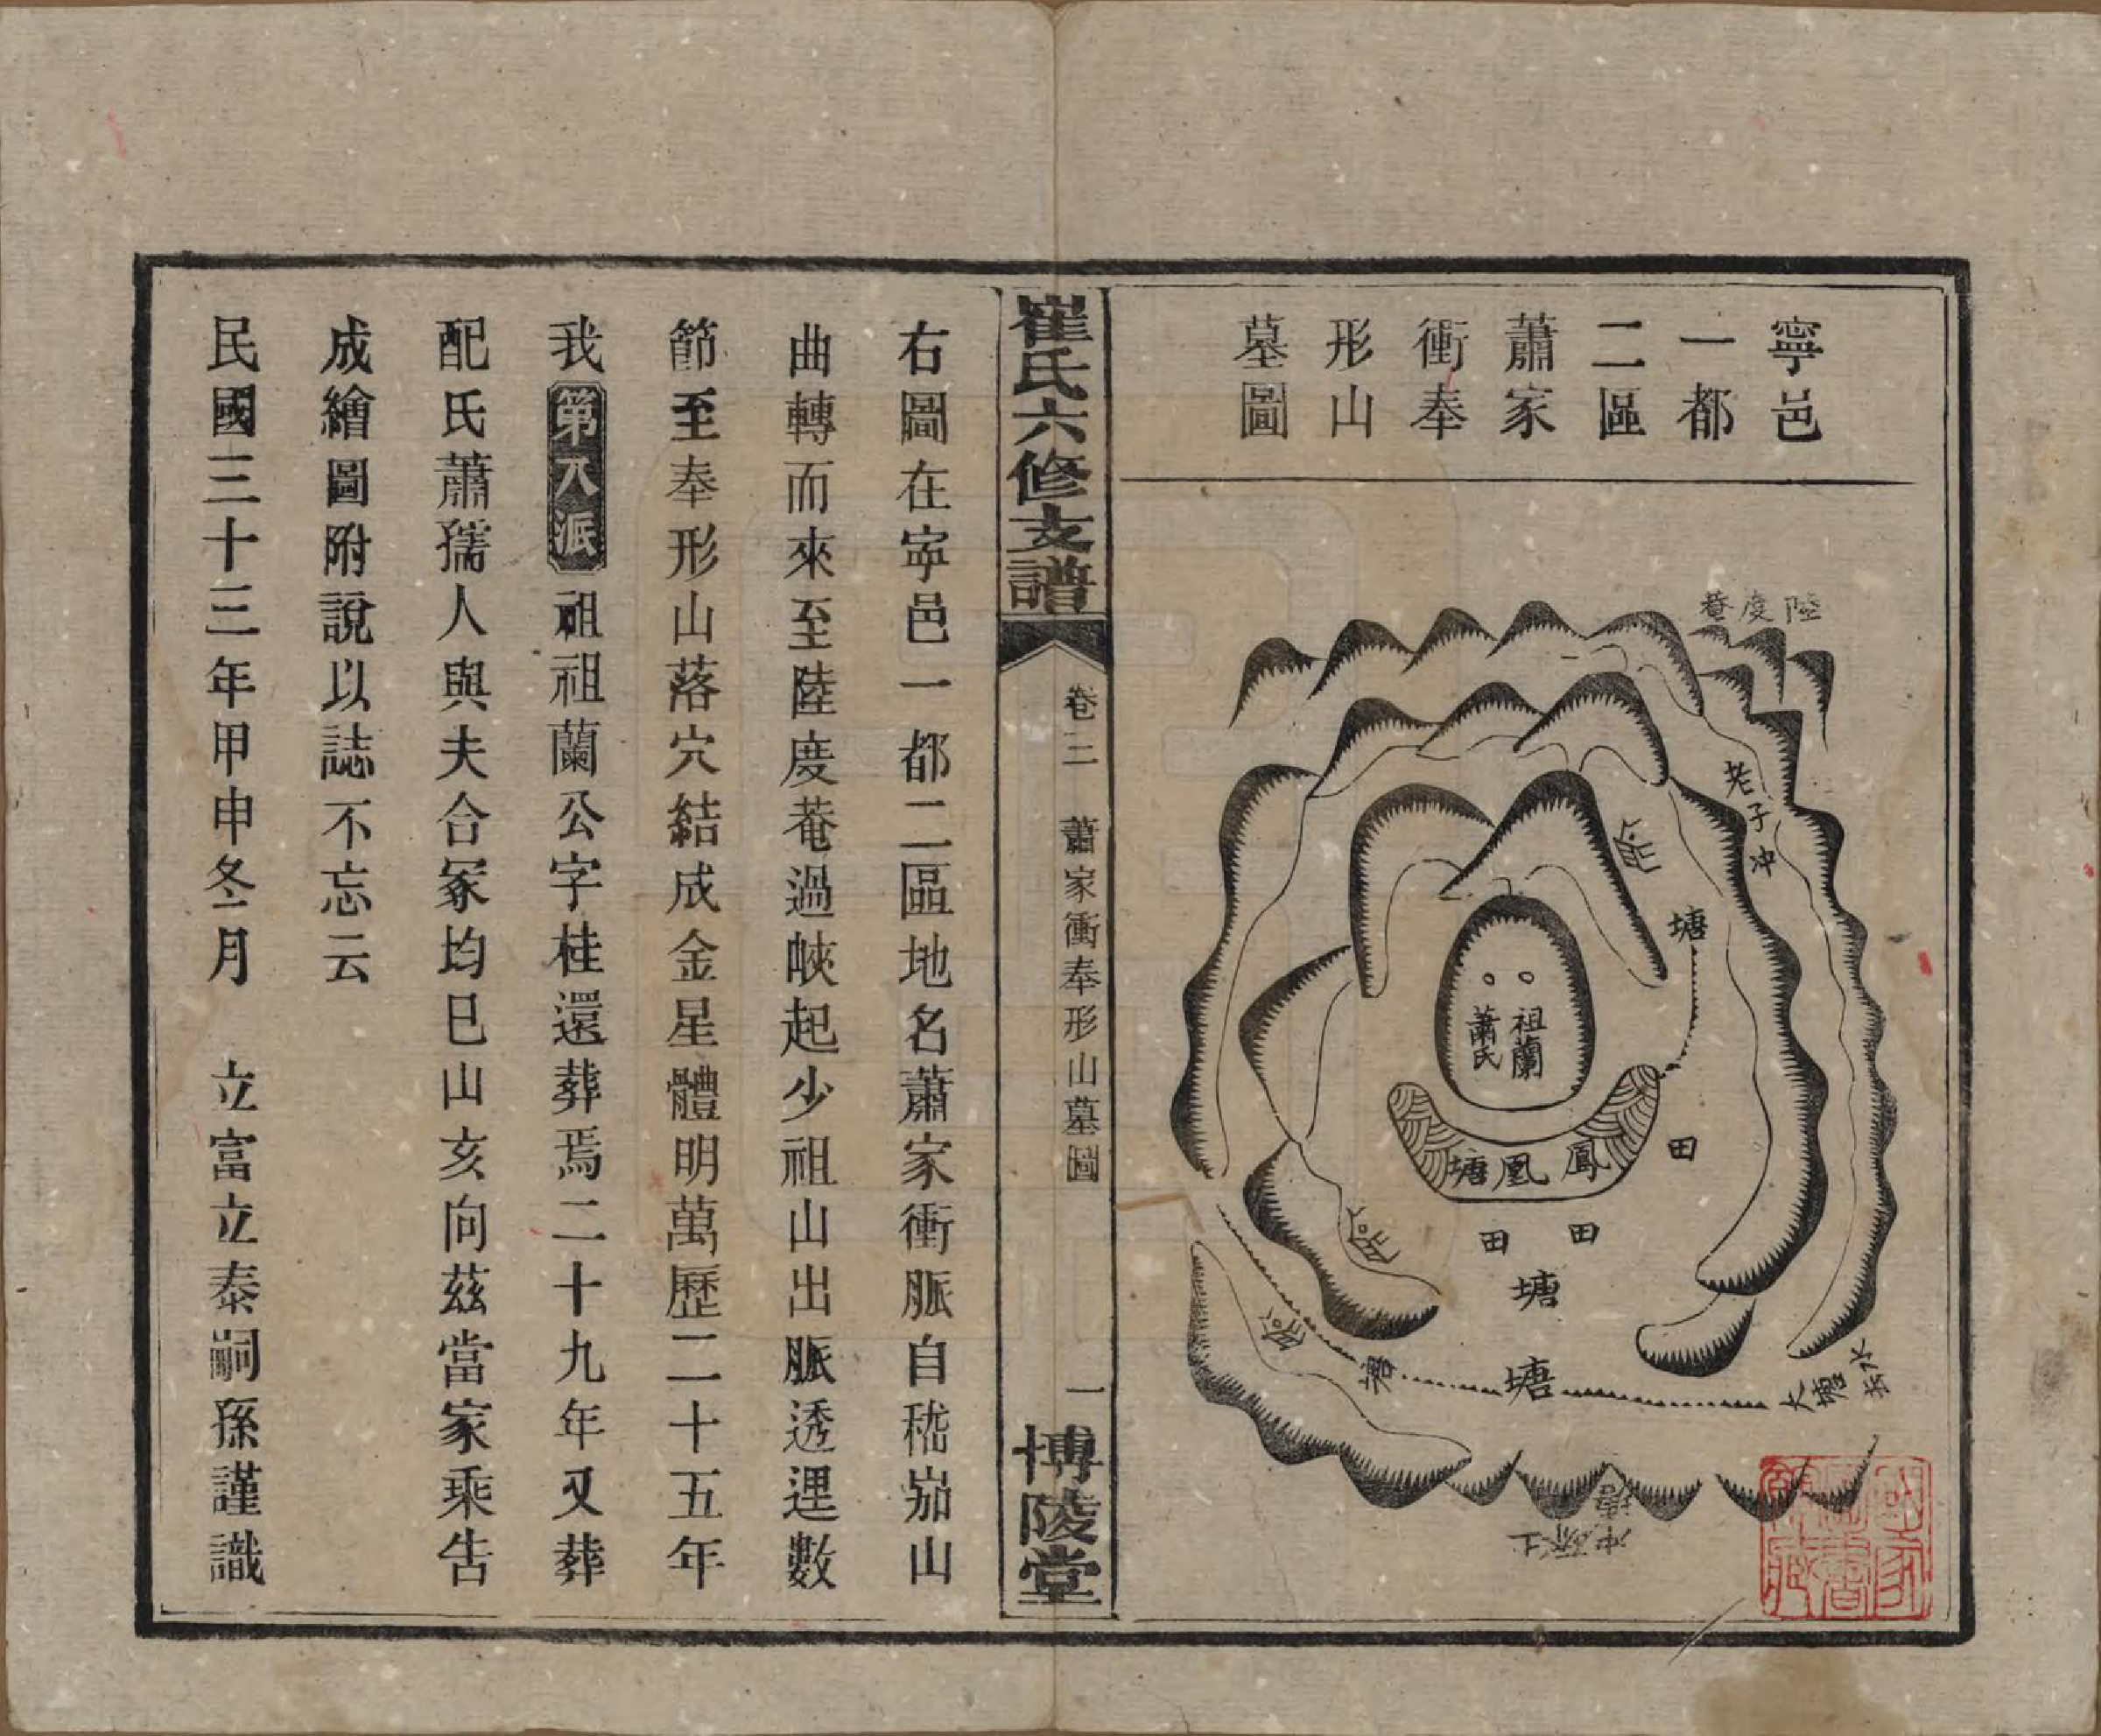 寧邑
一都
二區
蕭家
衝奉
形山
墓圖
陸度菴
老子冲
塘
祖蘭
蕭氏
鳳凰塘
田
田
田
塘
塘
大塘
水
崔氏六修支譜
卷二 蕭家衝奉形山墓圖
一
博陵堂
右圖在寧邑一都二區地名蕭家衝脈自嵇岊山
曲轉而來至陸度菴過峽起少祖山出脈透迊數
節至奉形山落穴結成金星體明萬歷二十五年
我第八派祖祖蘭公字桂還葬焉二十九年又葬
配氏蕭孺人與夫合冢均巳山亥向茲當家乘告
成繪圖附說以誌不忘云
民國三十三年甲申冬月 立富立泰嗣孫謹識